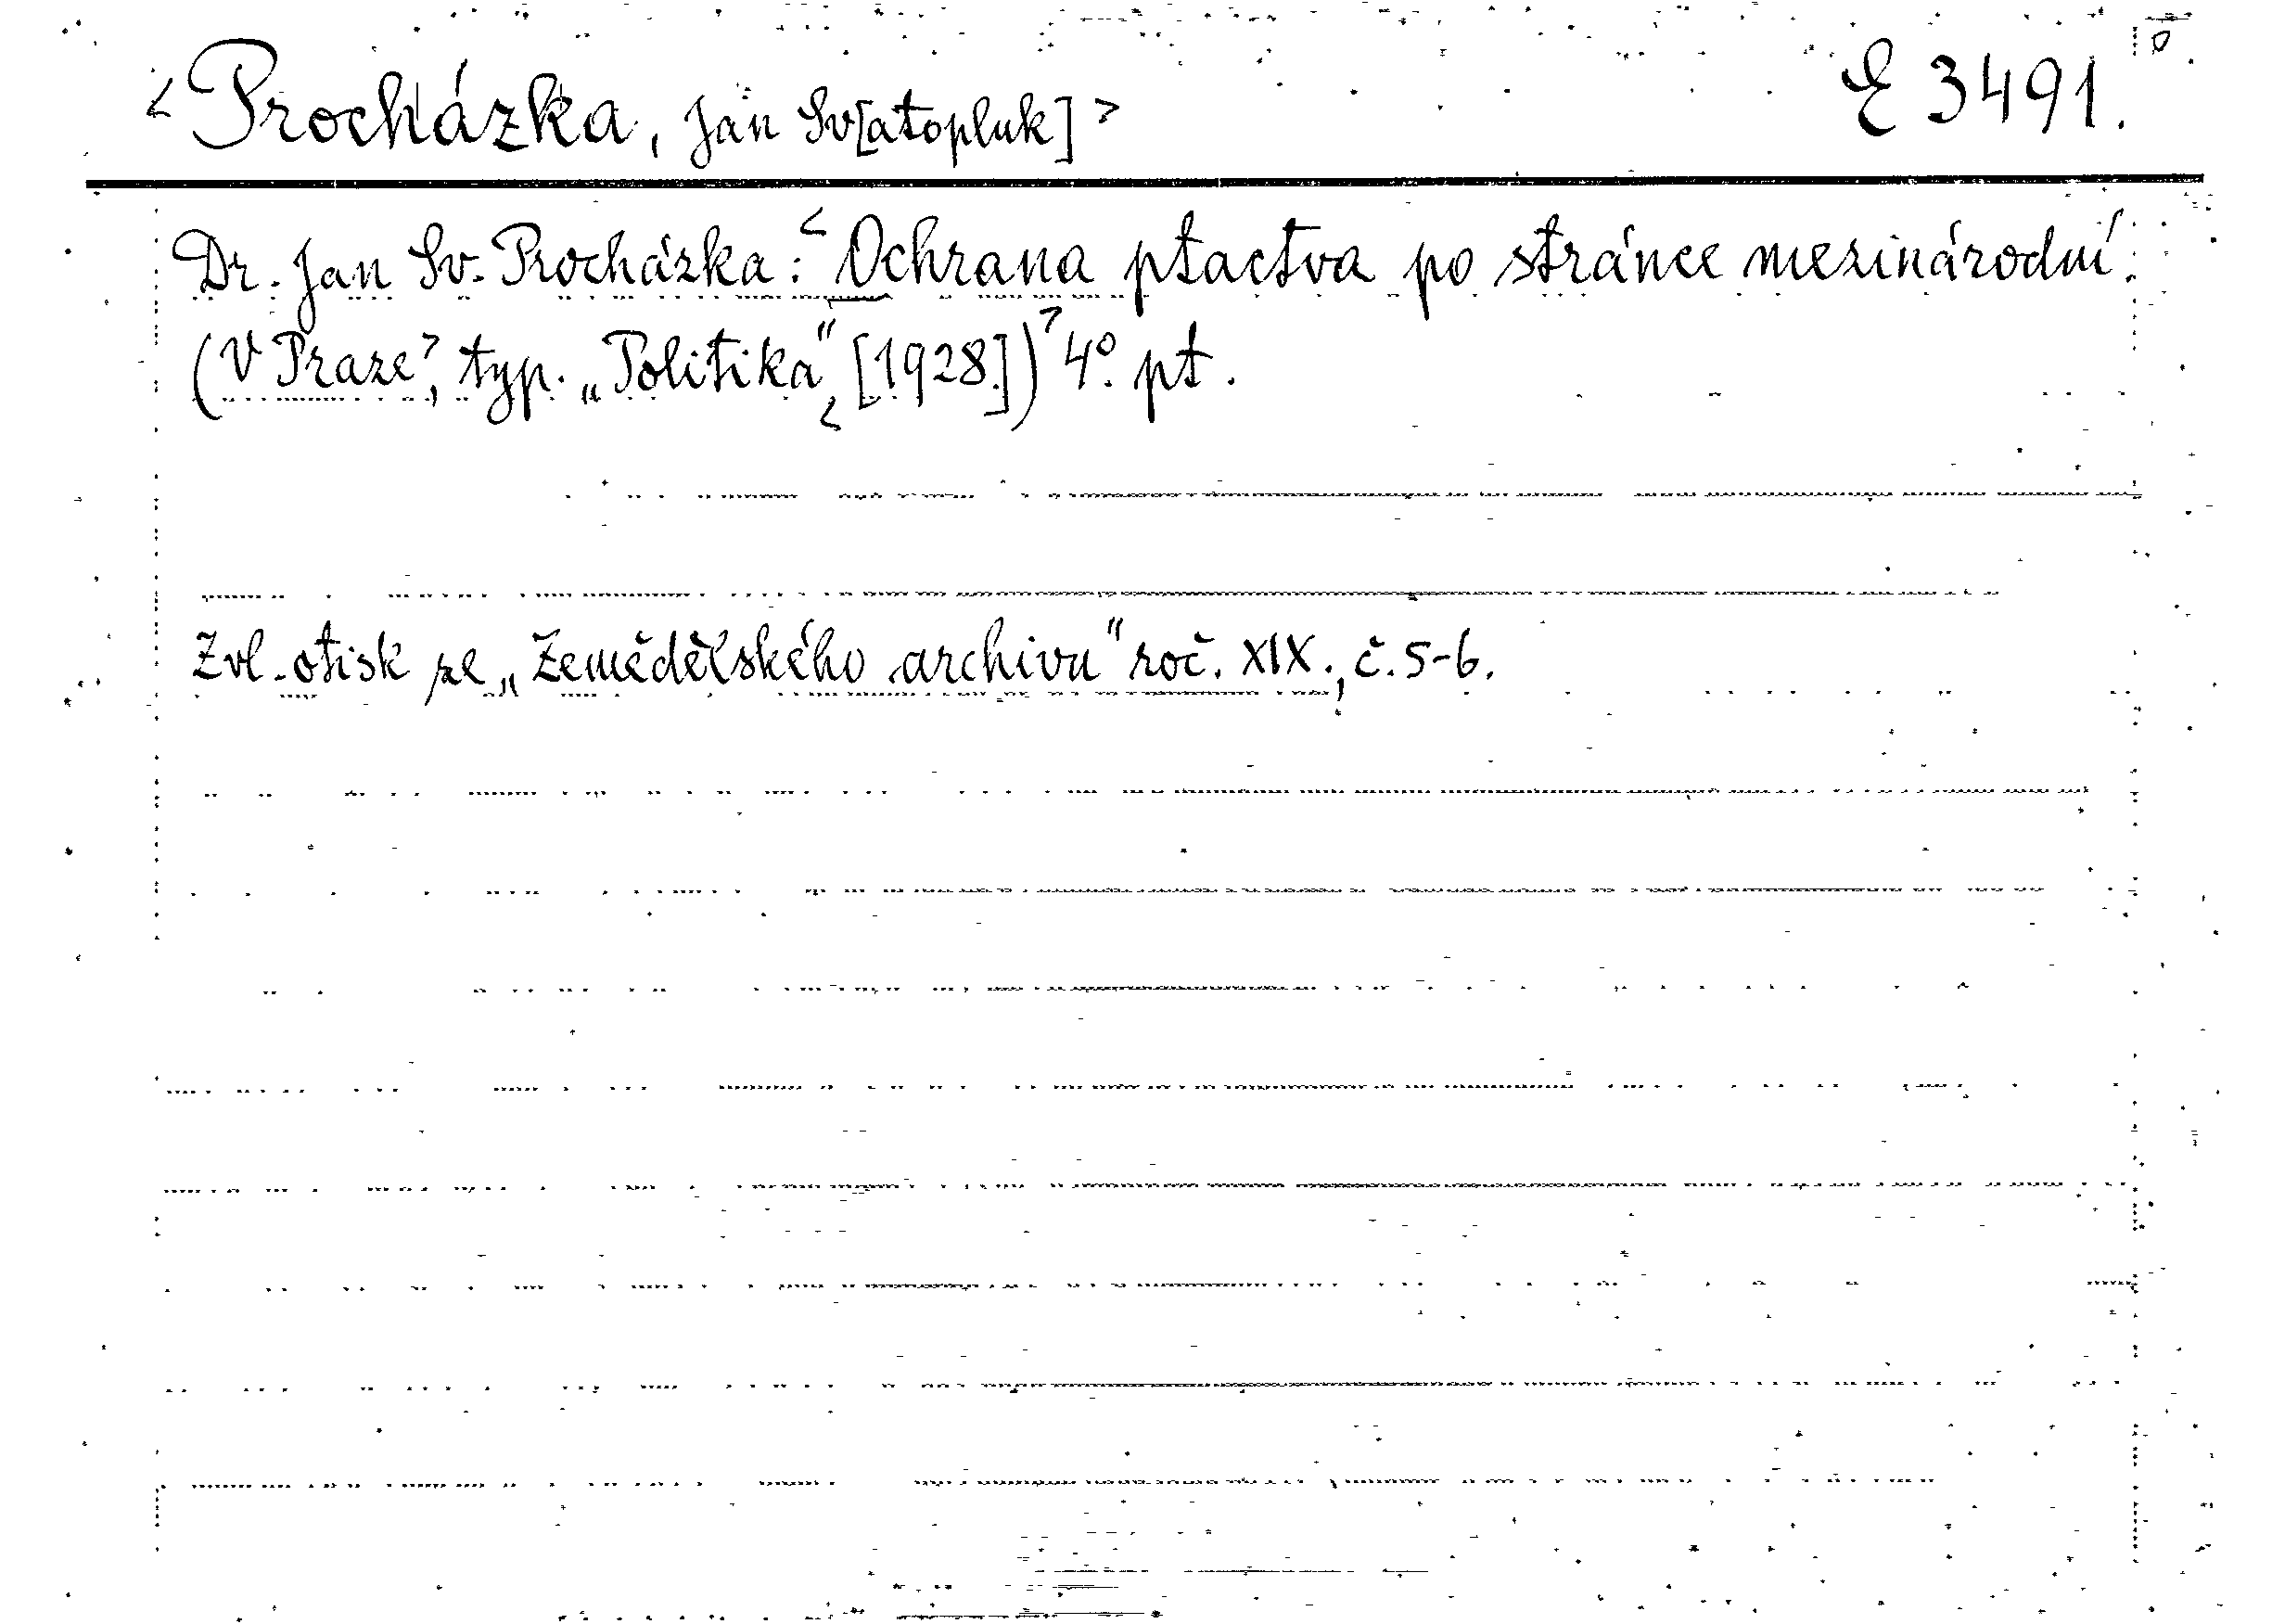 < Procházka, Jan Sv[atopluk] > E 3491.
Dr. Jan Sv. Procházka: < Ochrana ptactva po stránce mezinárodní.
(V Praze >, typ. „Politika“, < [1928.]) > 4º. pt.
Zvl. otisk ze „Zemědělského archivu“ roč. XIX., č. 5-6.